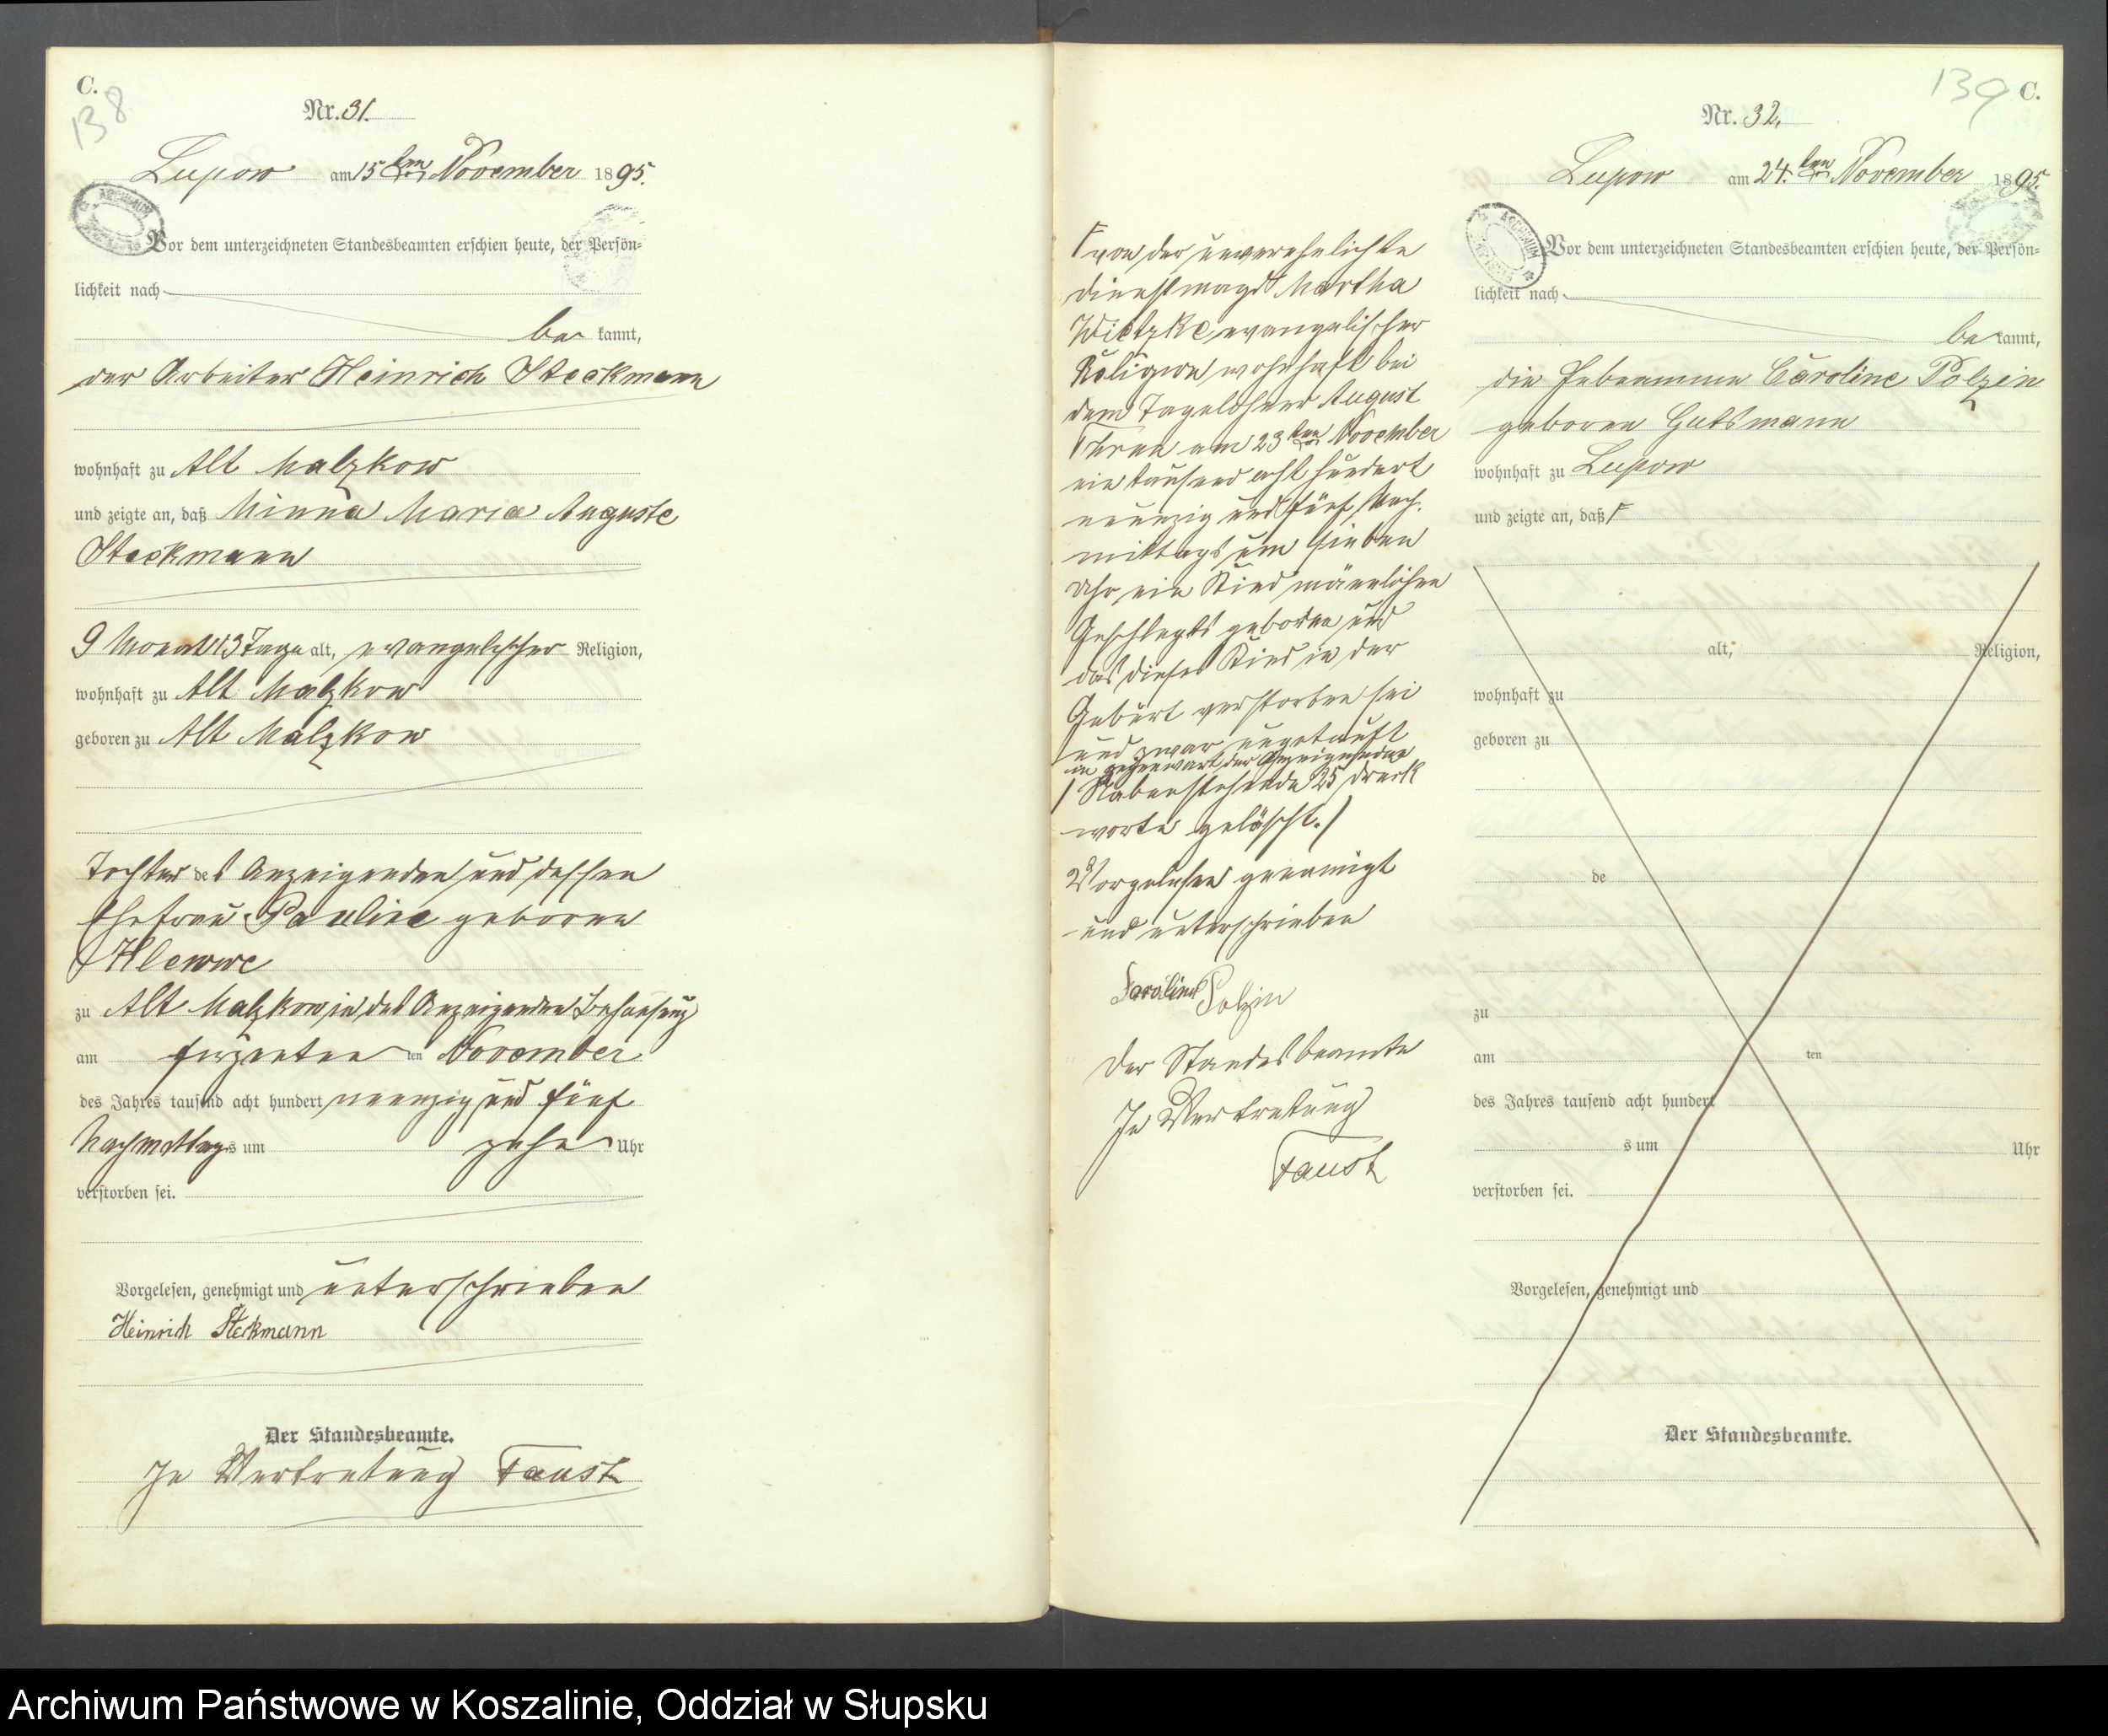 C.
138
Nr. 31.
Lupow am 15ten November 1895.
Vor dem unterzeichneten Standesbeamten erschien heute, der Persön-
lichkeit nach
be kannt,
der Arbeiter Heinrich Steckmann
wohnhaft zu Alt Malzkow
und zeigte an, daß Minna Maria Auguste
Steckmann
9 Monat 13 Tage alt, evangelischer Religion,
wohnhaft zu Alt Malzkow
geboren zu Alt Malzkow
Tochter des Anzeigenden und dessen
Ehefrau Pauline geboren
zu Alt Malzkow in des Anzeigenden Behausung
am ten November
des Jahres tausend acht hundert neunzig und fünf
Nachmittags um zehn Uhr
verstorben sei.
Vorgelesen, genehmigt und unterschrieben
Heinrich Stekmann
Der Standesbeamte.
In Vertretung Faust
139 C.
Nr. 32.
Lupow am 24.ten November 1895.
Vor dem unterzeichneten Standesbeamten erschien heute, der Persön-
lichkeit nach
be kannt,
die Hebeamme Caroline Polzin
geboren Gutsmann
wohnhaft zu Lupow
und zeigte an, daß
von der unverehelichte
Dienstmagd Martha
Wietzke evangelischer
Religion wohnhaft bei
dem Tagelöhner August
am 23ten November
ein tausend acht hundert
neunzig und fünf Nach-
mittags um sieben
Uhr ein Kind männlichen
Geschlechts geboren und
das dieses Kind in der
Geburt verstorben sei
und zwar ungetauft
in gegenwart der Anzeigenden
/ Nebenstehende 25 Druck
worte gelöscht. /
Vorgelesen genemigt
und unterschrieben
Caroline Polzin
Der Standesbeamte
In Vertretung
Faust
alt, Religion,
wohnhaft zu
geboren zu
de
zu
am ten
des Jahres tausend acht hundert
s um Uhr
verstorben sei.
Vorgelesen, genehmigt und
Der Standesbeamte.
Archiwum Państwowe w Koszalinie, Oddział w Słupsku